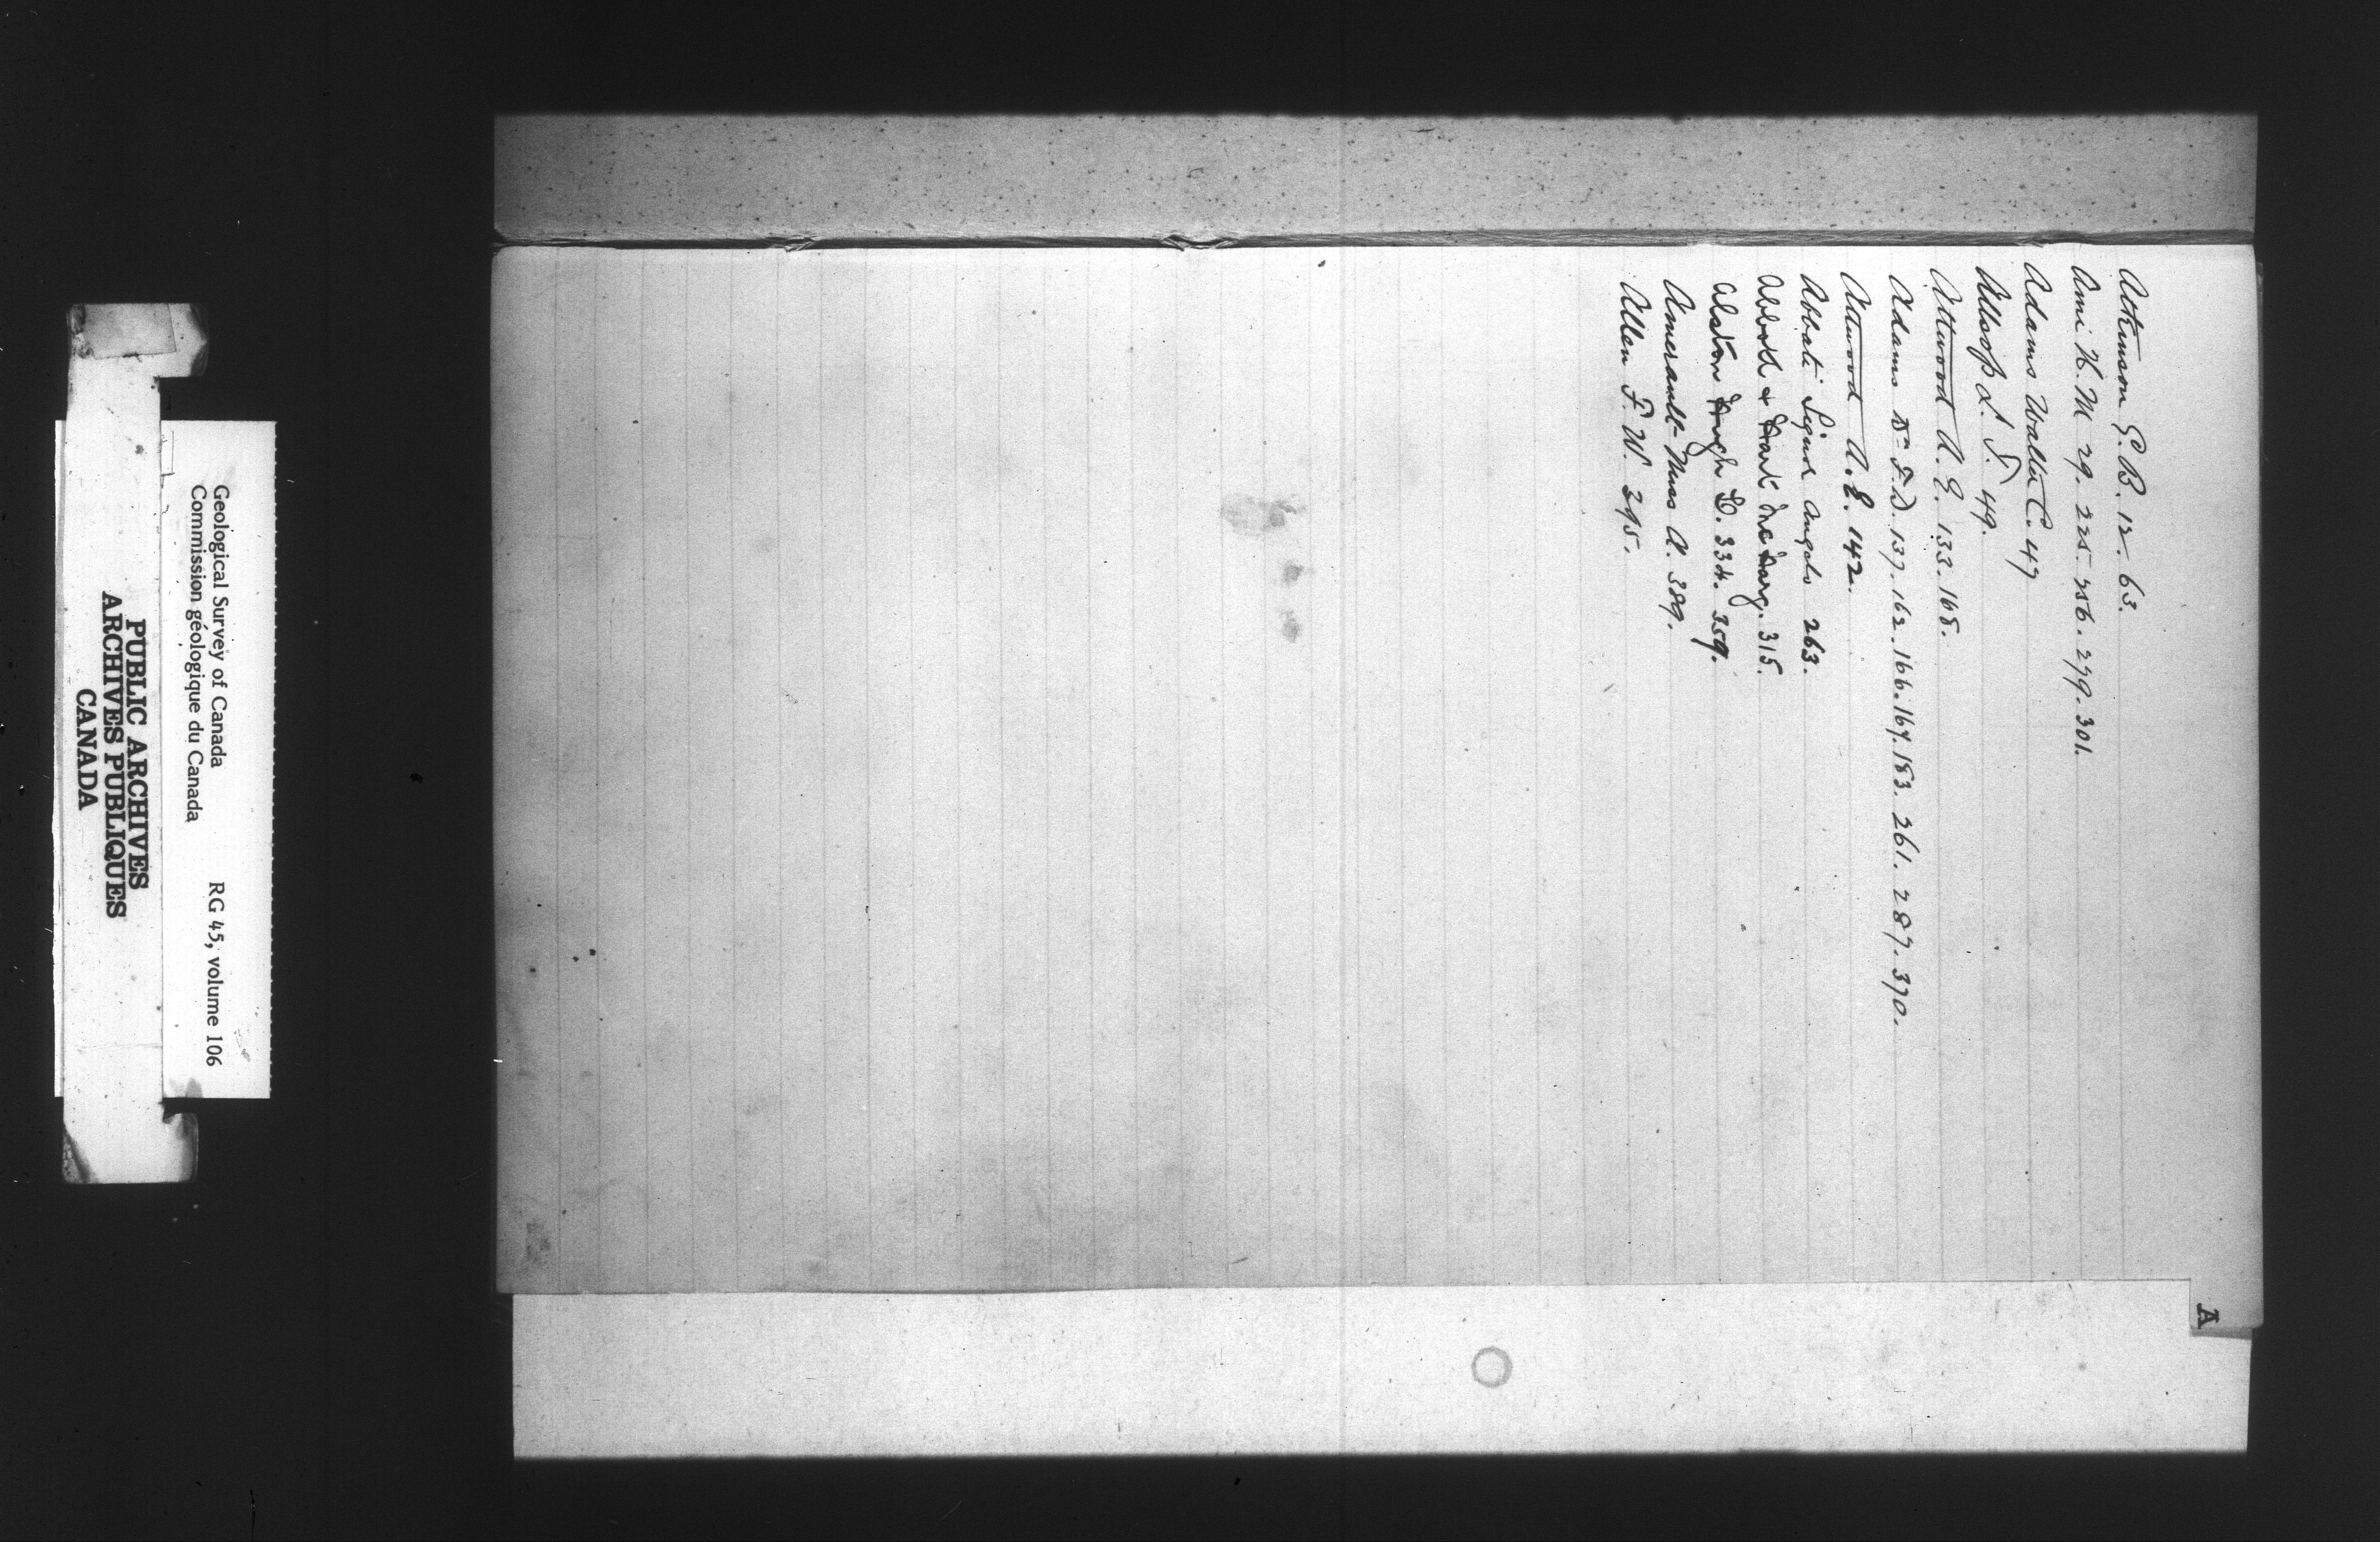 A
Atkinson G. B. 12. 63.
Ami H. M 29. 225. 256. 279. 301.
Adams Walter C. 47
Allsop L. F. 49.
Attwood A. E. 133. 165.
Adams Dr F. D. 137. 162. 166. 169. 183. 261. 287. 370.
Attwood A. E. 142.
Abbati Signor Angelo 263.
Abbott & Hart Mc Harg. 315.
Alston Hugh D. 334. 359.
Amerault Miss A. 389.
Allen F. W. 395.
Geological Survey of Canada RG 45, volume 106
Commission géologique du Canada
PUBLIC ARCHIVES
ARCHIVES PUBLIQUES
CANADA